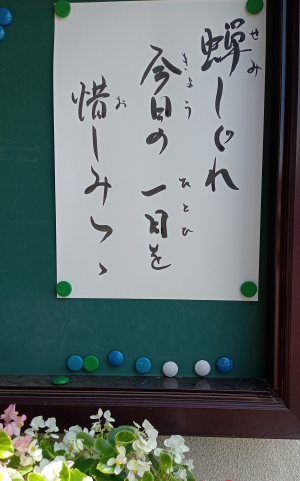 蝉しぐれ
せみ
今日の一日を
きょう ひとひ
惜しみつゝ
お